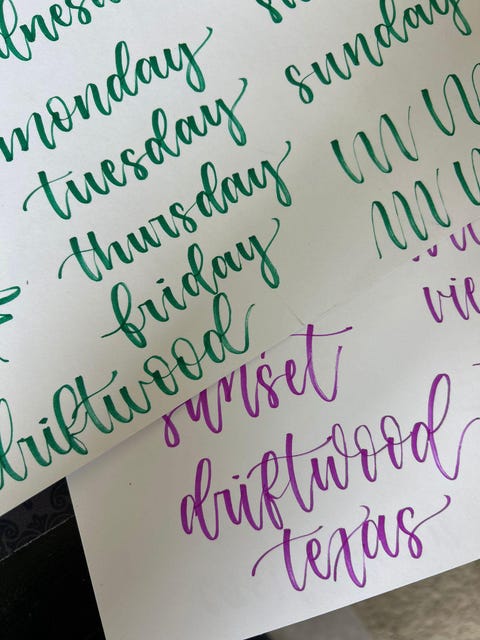 monday
tuesday
sunday
thursday
friday
driftwood
sunset
driftwood
texas